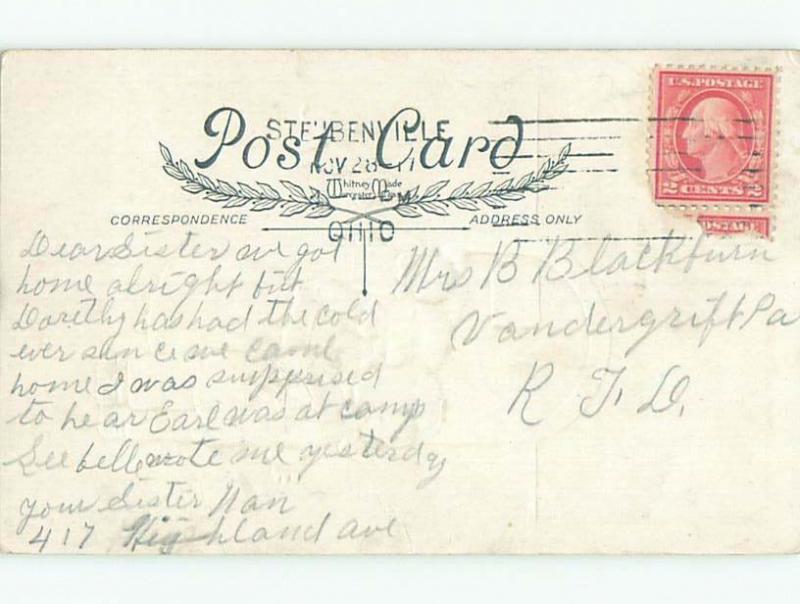 U.S. POSTAGE
2 CENTS 2
STEUBENVILLE
Post Card
NOV 28 17
Whitney Made
Worcester Mass
M
OHIO
CORRESPONDENCE
ADDRESS ONLY
Dear Sister we got
home alright but
Dorethy has had the cold
ever sun ce we came
home I was surpprised
to hear Earl was at camp
bell wrote me yesterday
your Sister Nan
417 Highland ave
Mrs B Blackburn
Vandergrift Pa
R F D.